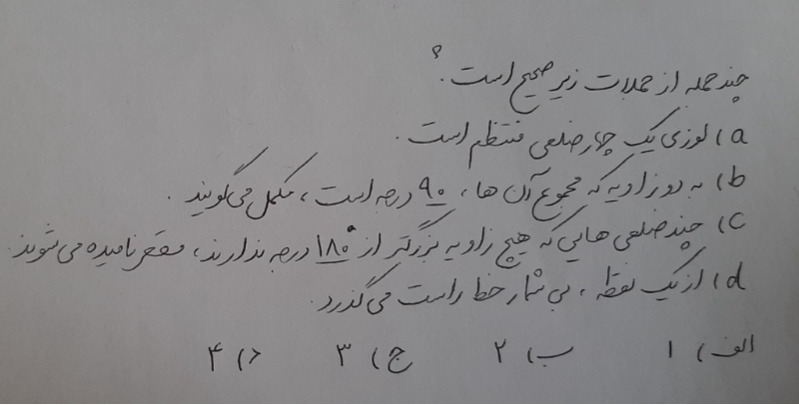 چند جمله از جملات زیر صحیح است؟
a) لوزی یک چهارضلعی منتظم است.
b) به دو زاویه که مجموع آن ها، ۹۰ درجه است، مکمل می‌گویند.
c) چندضلعی هایی که هیچ زاویه بزرگتر از ۱۸۰° درجه ندارند، مقعر نامیده می شوند.
d) از یک نقطه، بی شمار خط راست می گذرد.
الف) ۱ ب) ۲ ج) ۳ د) ۴